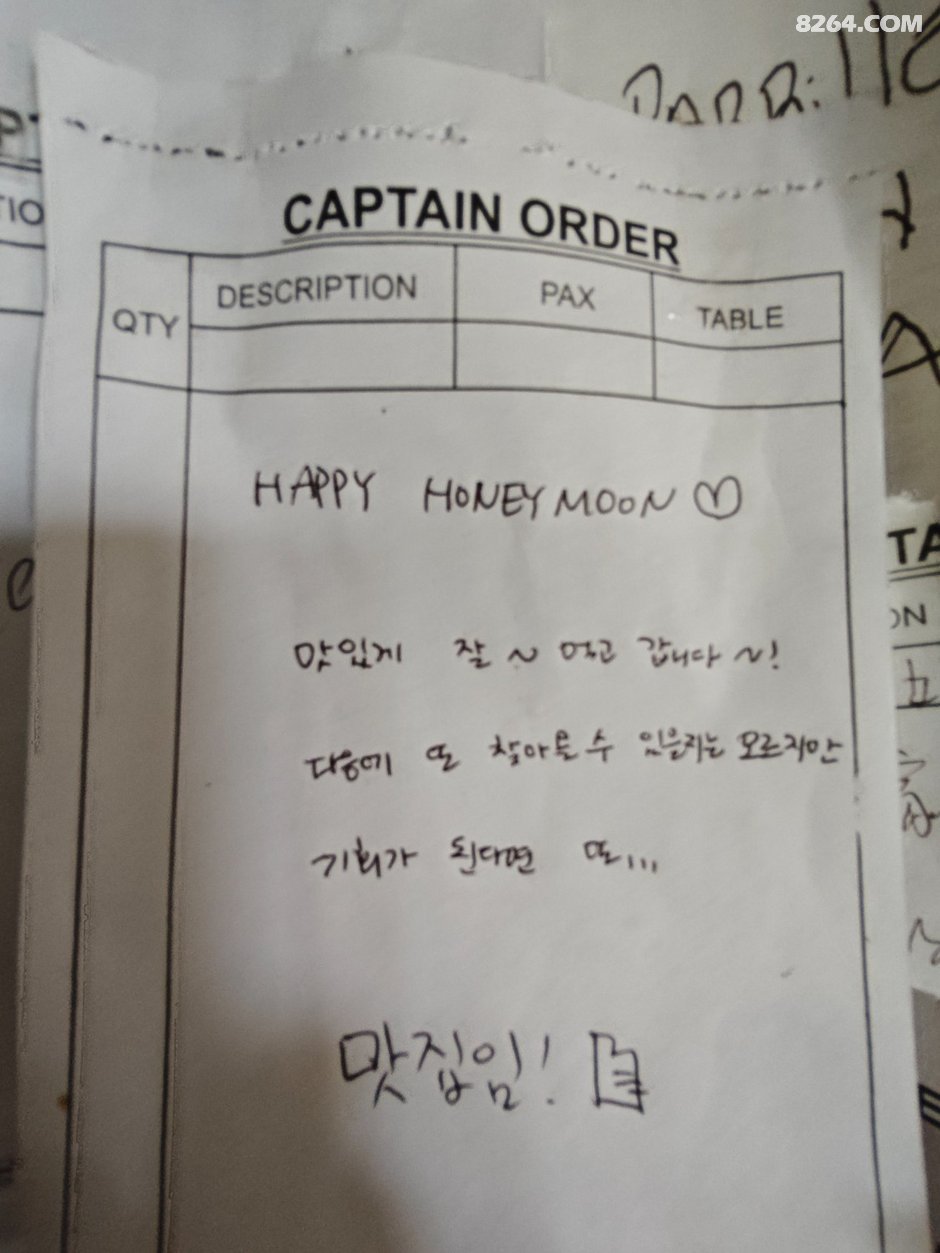 8264.COM
CAPTAIN ORDER
QTY DESCRIPTION PAX TABLE
HAPPY HONEYMOON ♡
맛있게 잘 ~ 먹고 갑니다 ~!
다음에 또 찾아올 수 있을지는 모르지만
기회가 된다면 또...
맛집임!